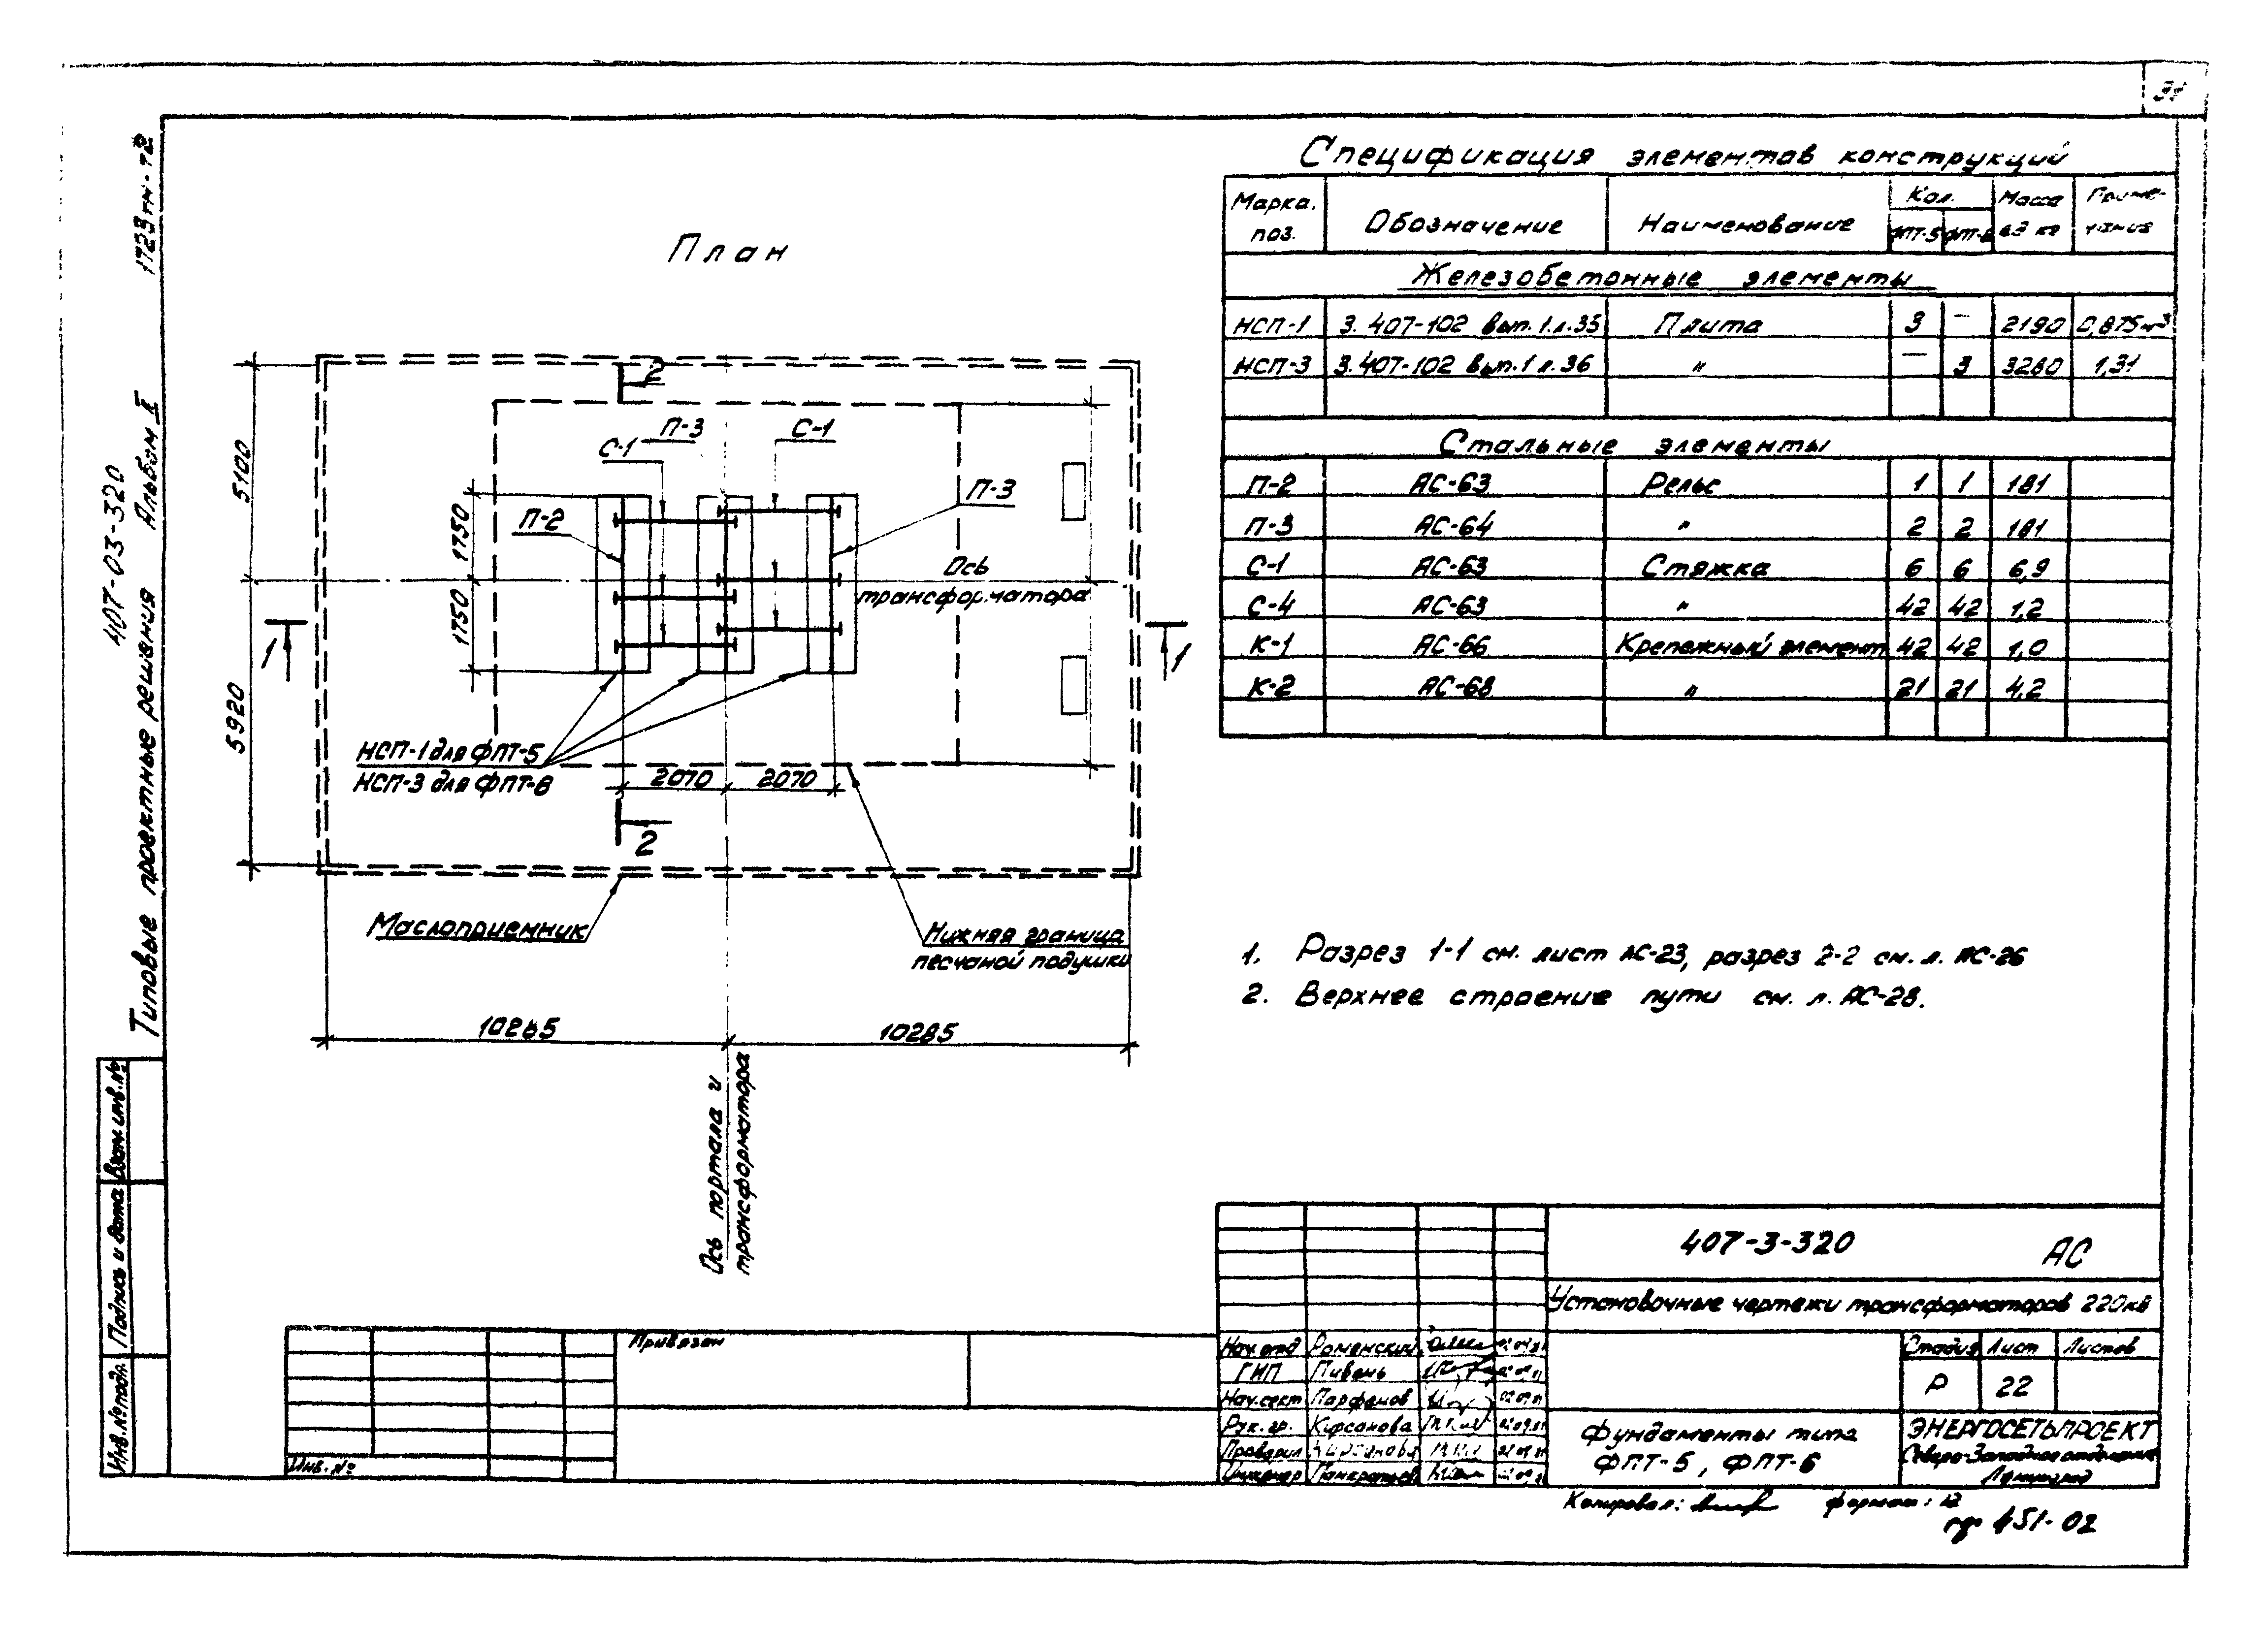 План
2
П-3
С-1
С-1
П-3
П-2
5100
1750
1750
5920
Ось
трансформатора
1
1
НСП-1 для ФПТ-5
НСП-3 для ФПТ-6
2070 2070
2
Маслоприемник
Нижняя граница
песчаной подушки
10285 10285
Ось портала и
трансформатора
Спецификация элементов конструкций
Марка. поз. Обозначение Наименование Кол. Масса ед кг Приме-чание
ФПТ-5 ФПТ-6
Железобетонные элементы
НСП-1 3.407-102 вып.1.л.35 Плита 3 — 2190 0,875м³
НСП-3 3.407-102 вып.1 л.36 " — 3 3280 1,31
Стальные элементы
П-2 АС-63 Рельс 1 1 181
П-3 АС-64 " 2 2 181
С-1 АС-63 Стяжка 6 6 6,9
С-4 АС-63 " 42 42 1,2
К-1 АС-66 Крепежный элемент 42 42 1,0
К-2 АС-68 " 21 21 4,2
1. Разрез 1-1 см. лист АС-23, разрез 2-2 см. л. АС-26
2. Верхнее строение пути см. л. АС-28.
1723тм-т2
407-03-320
Типовые проектные решения Альбом II
Взам. инв. №
Подпись и дата
Инв. № подл.
Привязан
Инв. №
407-3-320 АС
Установочные чертежи трансформаторов 220кв
Нач. отд Роменский
ГИП Пивень
Нач. сект Парфенов
Рук. гр. Кирсанова
Проверил Кирсанова
Инженер
Стадия Лист Листов
Р 22
Фундаменты типа
ФПТ-5, ФПТ-6
ЭНЕРГОСЕТЬПРОЕКТ
Северо-Западное отделение
Ленинград
Копировал: формат: 12
451-02